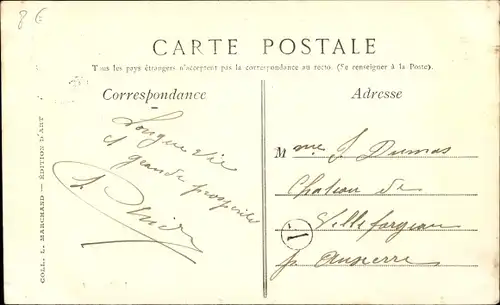 8 €
CARTE POSTALE
Tous les pays étrangers n'acceptent pas la correspondance au recto. (Se renseigner à la Poste).
Correspondance
Adresse
Longue vie
et grande prospérité
Mme J. Dumas
Château de
Villefargeau
1
pr Auxerre
COLL. L. MARCHAND — ÉDITION D'ART